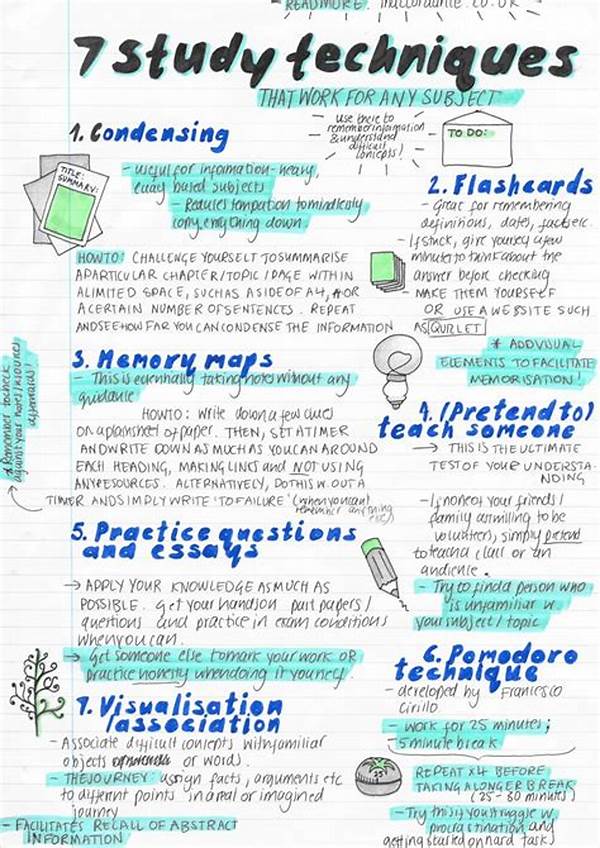 READ MORE:
7 study techniques
THAT WORK FOR ANY SUBJECT
use these to
remember information
& understand
difficult
concepts!
TO DO:
1. Condensing
- useful for information-heavy,
essay based subjects
- Reduces temptation to mindlessly
copy everything down
TITLE:
SUMMARY:
HOW TO: CHALLENGE YOURSELF TO SUMMARISE
A PARTICULAR CHAPTER/TOPIC/PAGE WITHIN
A LIMITED SPACE, SUCH AS A SIDE OF A4, OR
A CERTAIN NUMBER OF SENTENCES. REPEAT
AND SEE HOW FAR YOU CAN CONDENSE THE INFORMATION
2. Flashcards
- Great for remembering
definitions, dates, facts etc.
- If stuck, give yourself a few
minutes to think about the
answer before checking
- MAKE THEM YOURSELF
OR USE A WEBSITE SUCH
AS QUIZLET
* ADD VISUAL
ELEMENTS TO FACILITATE
MEMORISATION!
3. Memory maps
- This is essentially taking notes without any
guidance
HOW TO: Write down a few clues
on a plain sheet of paper. THEN, SET A TIMER
AND WRITE DOWN AS MUCH AS YOU CAN AROUND
EACH HEADING, MAKING LINES and NOT USING
ANY RESOURCES. ALTERNATIVELY, DO THIS W.OUT A
TIMER AND SIMPLY WRITE 'TO FAILURE' (when you can't
remember anything
else)
* Remember to check
against your notes/resources
afterwards!
4. (Pretend to)
teach someone
→ THIS IS THE ULTIMATE
TEST OF YOUR UNDERSTA-
NDING
- If none of your friends/
family are willing to be
volunteers, simply pretend
to teach a class or an
audience.
- Try to find a person who
is unfamiliar w.
your subject/topic
5. Practice questions
and essays
→ APPLY YOUR KNOWLEDGE AS MUCH AS
POSSIBLE. Get your hands on past papers/
questions and practice in exam conditions
when you can.
→ Get someone else to mark your work OR
practice honesty when doing it yourself.
6. Pomodoro
technique
- developed by Francesco
Cirillo
- Work for 25 minutes;
5 minute break
25
REPEAT x4 BEFORE
TAKING A LONGER BREAK
(25-30 minutes)
- Try this if you struggle w.
procrastination and
getting started on hard tasks)
7. Visualisation
/association
- Associate difficult concepts with familiar
objects or words.
- THE JOURNEY: assign facts, arguments etc
to different points in a real or imagined
journey
- FACILITATES RECALL OF ABSTRACT
INFORMATION